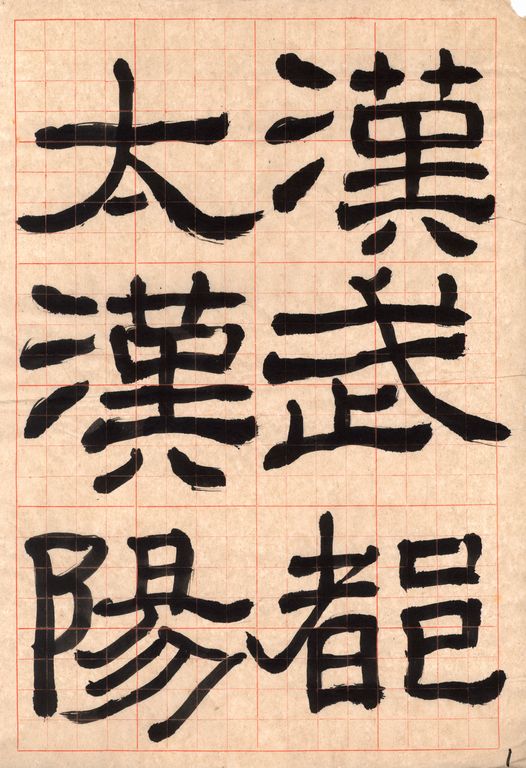 漢武都
太漢陽